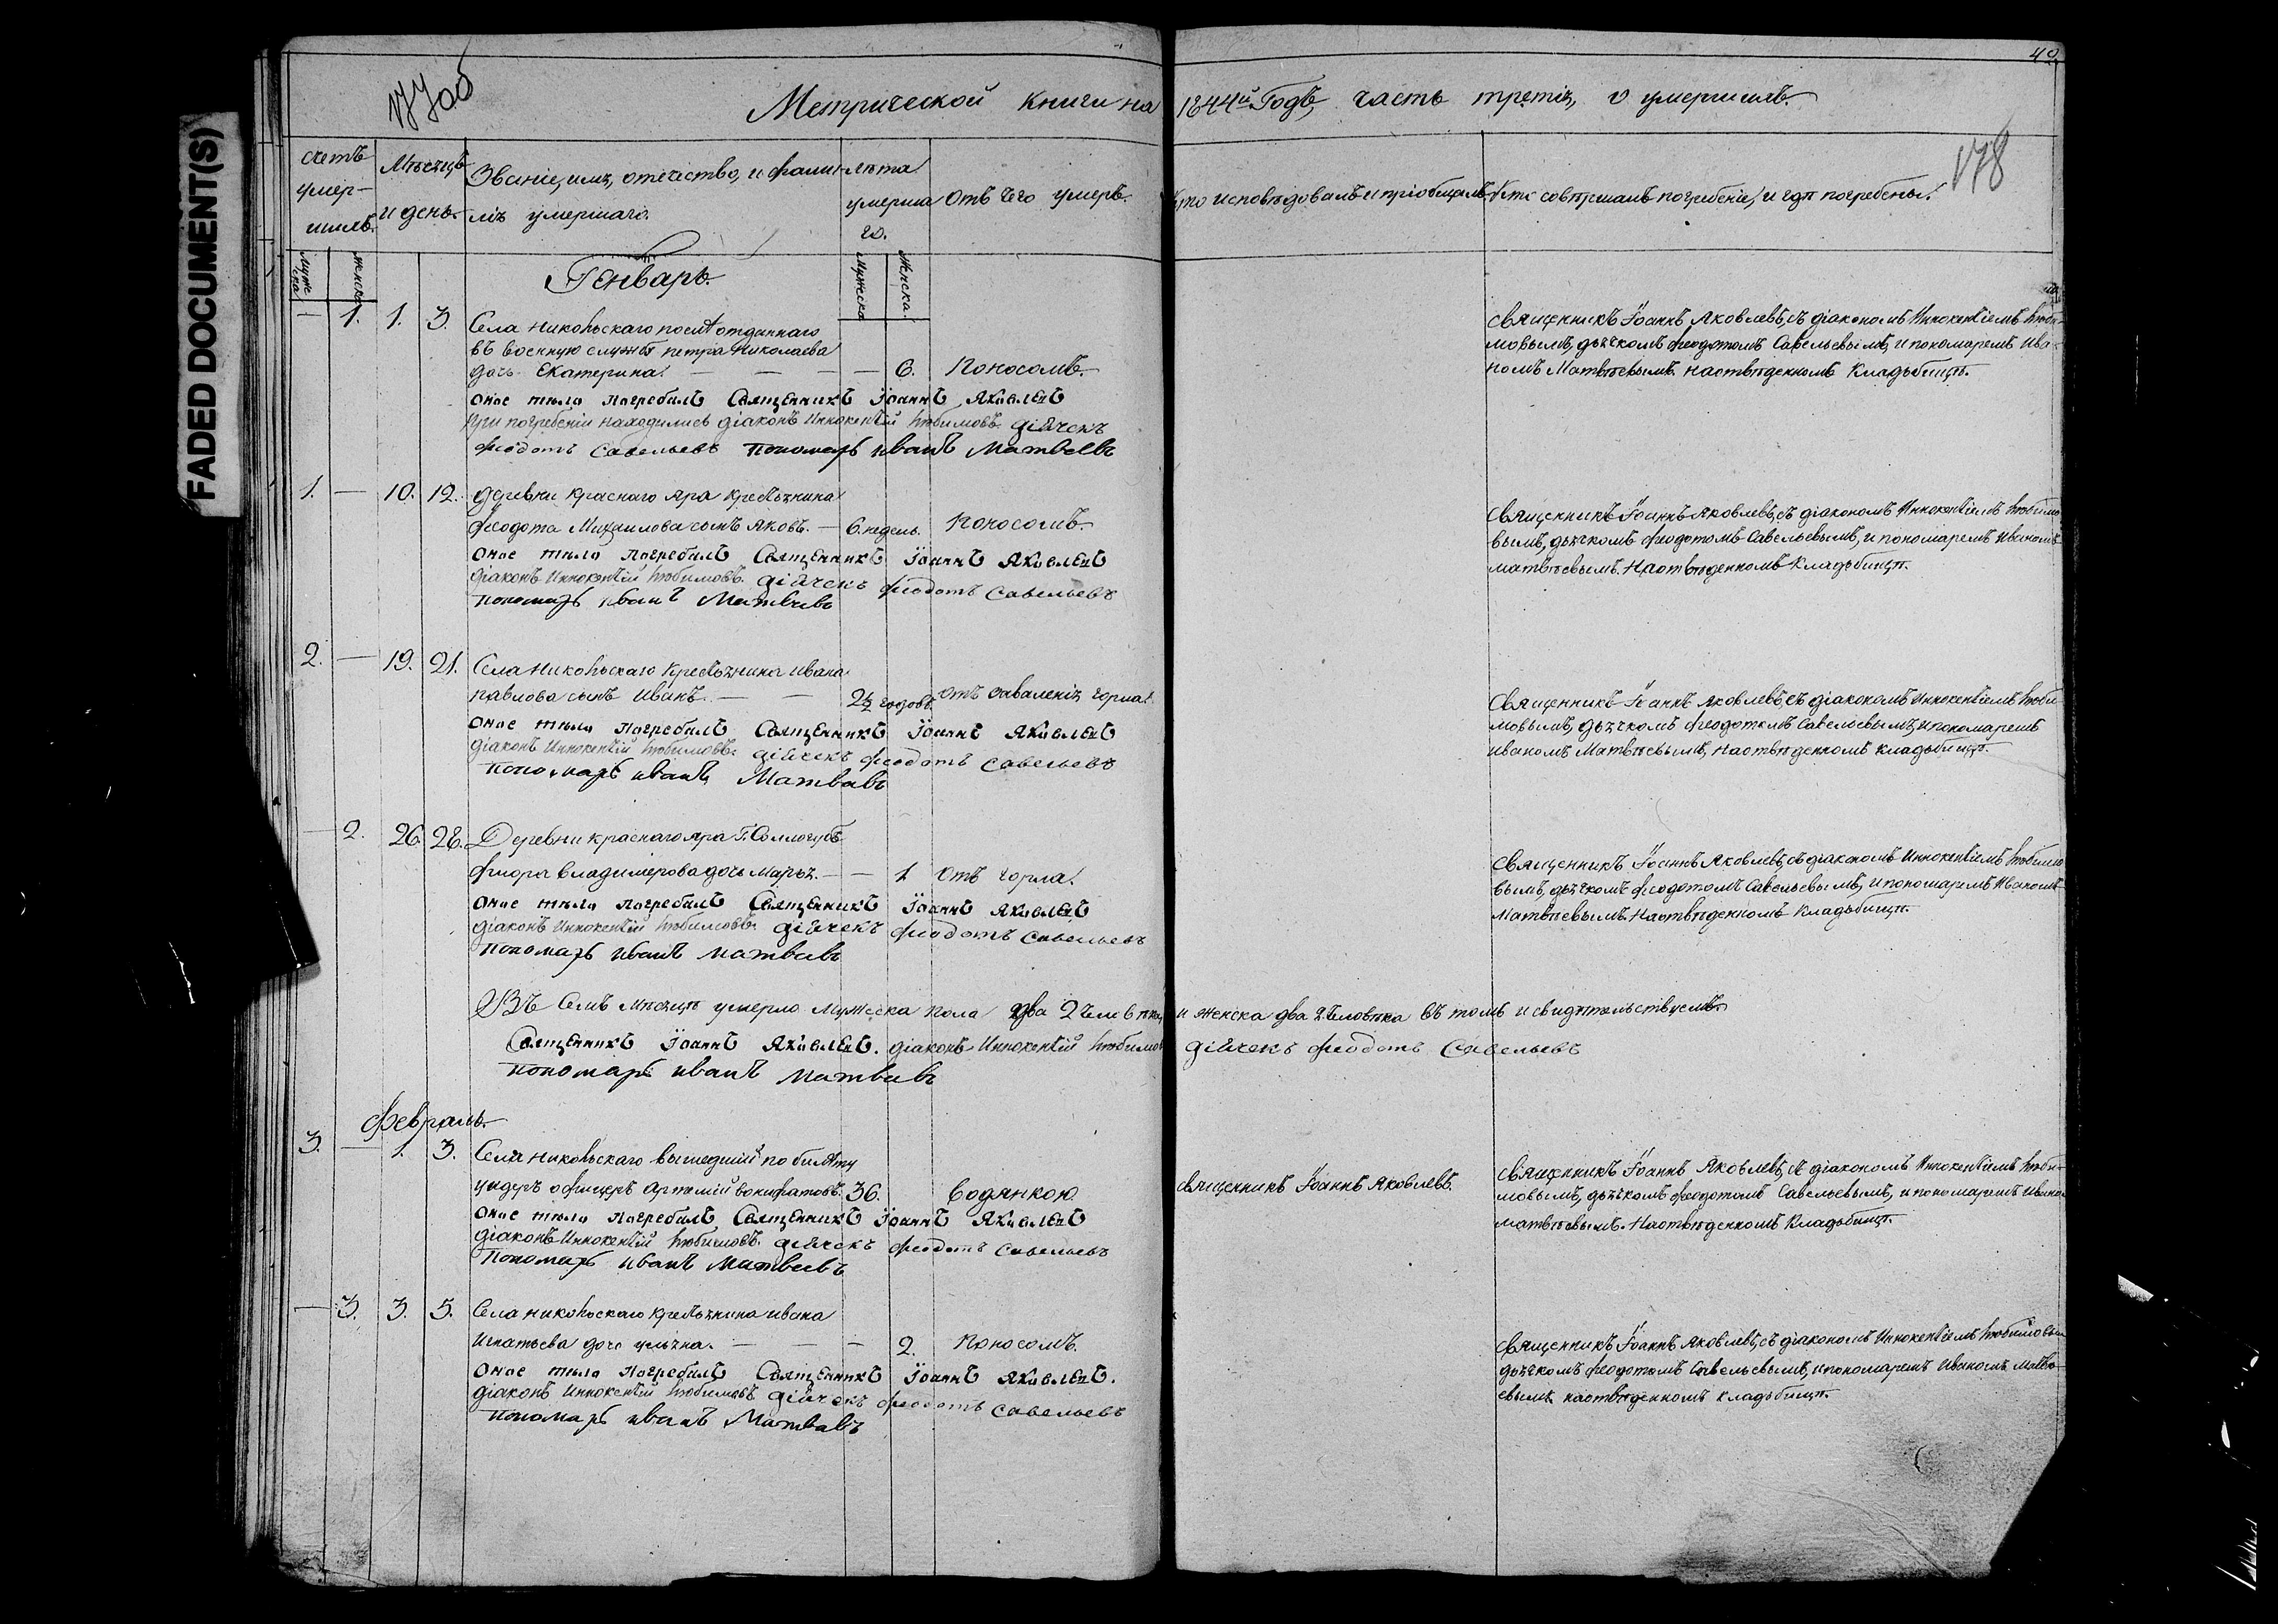 FADED DOCUMENT(S)
177об
49
178
Метрической книги на 1844й Годъ, часть третія, о умершихъ.
счетъ умер-
шихъ.
Мѣсяцъ
и день.
Званіе, имя, отечество, и фами-
лія умершаго.
лѣта
умерша
го.
Отъ чего умеръ.
Кто исповѣдовалъ и пріобщалъ.
Кто совершалъ погребеніе, и гдѣ погребены.
Муже
ска
женска
Мужеска
Женска.
Генварь.
— 1. 1. 3. Села Никольскаго послѣ отданнаго
въ военную службу петра Николаева
дочь Екатерина. — — — — 6. Поносомъ.
Оное тѣло погребалъ Священникъ Іоаннъ Яковлевъ
При погребеніи находились діаконъ Иннокентій Любимовъ. діячекъ
Феодотъ Савельевъ Пономарь Иванъ Матвѣевъ
Священникъ Іоаннъ Яковлевъ, съ діакономъ Иннокентіемъ Люби-
мовымъ, дьячкомъ Феодотомъ Савельевымъ, и пономаремъ Ива-
номъ Матвѣевымъ. На отвѣденномъ Кладьбищѣ.
1. — 10. 12. Деревни Краснаго Яра Крестьянина
Феодота Михаилова сынъ Яковъ. — 6. недель. Поносомъ.
Оное тѣло погребалъ Священникъ Іоаннъ Яковлевъ
діаконъ Иннокентій Любимовъ. діячекъ Феодотъ Савельевъ
Пономарь Иванъ Матвѣевъ
Священникъ Іоаннъ Яковлевъ, съ діакономъ Иннокентіемъ Любимо-
вымъ, дьячкомъ Феодотомъ Савельевымъ, и пономаремъ Иваномъ
Матвѣевымъ. На отвѣденномъ Кладьбищѣ.
2. — 19. 21. Села Никольскаго Крестьянина Ивана
Павлова сынъ Иванъ. — — 2½ годовъ. отъ заваленія горла.
Оное тѣло погребалъ Священникъ Іоаннъ Яковлевъ
діаконъ Иннокентій Любимовъ. діячекъ Феодотъ Савельевъ
Пономарь Иванъ Матвѣевъ
Священникъ Іоаннъ Яковлевъ, съ діакономъ Иннокентіемъ Люби-
мовымъ, дьячкомъ Феодотомъ Савельевымъ, и пономаремъ
Иваномъ Матвѣевымъ, На отвѣденномъ Кладьбищѣ.
— 2. 26. 28. Деревни Краснаго Яра
Флора Владимерова дочь Марья. — — 1 отъ горла.
Оное тѣло погребалъ Священникъ Іоаннъ Яковлевъ
діаконъ Иннокентій Любимовъ. діячекъ Феодотъ Савельевъ
Пономарь Иванъ Матвѣевъ
Священникъ Іоаннъ Яковлевъ, съ діакономъ Иннокентіемъ Любимо
вымъ, дьячкомъ Феодотомъ Савельевымъ, и пономаремъ Иваномъ
Матвѣевымъ. На отвѣденномъ Кладьбищѣ.
Въ Семъ Мѣсяцѣ умерло Мужеска пола два 2 и женска два 2 человѣка въ томъ и свидѣтельствуемъ.
Священникъ Іоаннъ Яковлевъ. діаконъ Иннокентій Любимовъ діячекъ Феодотъ Савельевъ
Пономарь Иванъ Матвѣевъ
Февраль.
3. — 1. 3. Села Никольскаго вышедшій по билѣту
ундеръ офицеръ Артемій Вонифатовъ. 36. Водянкою.
Оное тѣло погребалъ Священникъ Іоаннъ Яковлевъ
діаконъ Иннокентій Любимовъ. діячекъ Феодотъ Савельевъ
Пономарь Иванъ Матвѣевъ
Священникъ Іоаннъ Яковлевъ.
Священникъ Іоаннъ Яковлевъ, съ діакономъ Иннокентіемъ Люби-
мовымъ, дьячкомъ Феодотомъ Савельевымъ, и пономаремъ Ивано
Матвѣевымъ. На отвѣденномъ Кладьбищѣ.
— 3. 3. 5. Села Никольскаго Крестьянина Ивана
Игнатьева дочь — — — 2. Поносомъ.
Оное тѣло погребалъ Священникъ Іоаннъ Яковлевъ.
діаконъ Иннокентій Любимовъ діячекъ Феодотъ Савельевъ
Пономарь Иванъ Матвѣевъ
Священникъ Іоаннъ Яковлевъ, съ діакономъ Иннокентіемъ Любимовы
дьячкомъ Феодотомъ Савельевымъ, и пономаремъ Иваномъ Матвѣ-
евымъ на отвѣденномъ Кладьбищѣ.